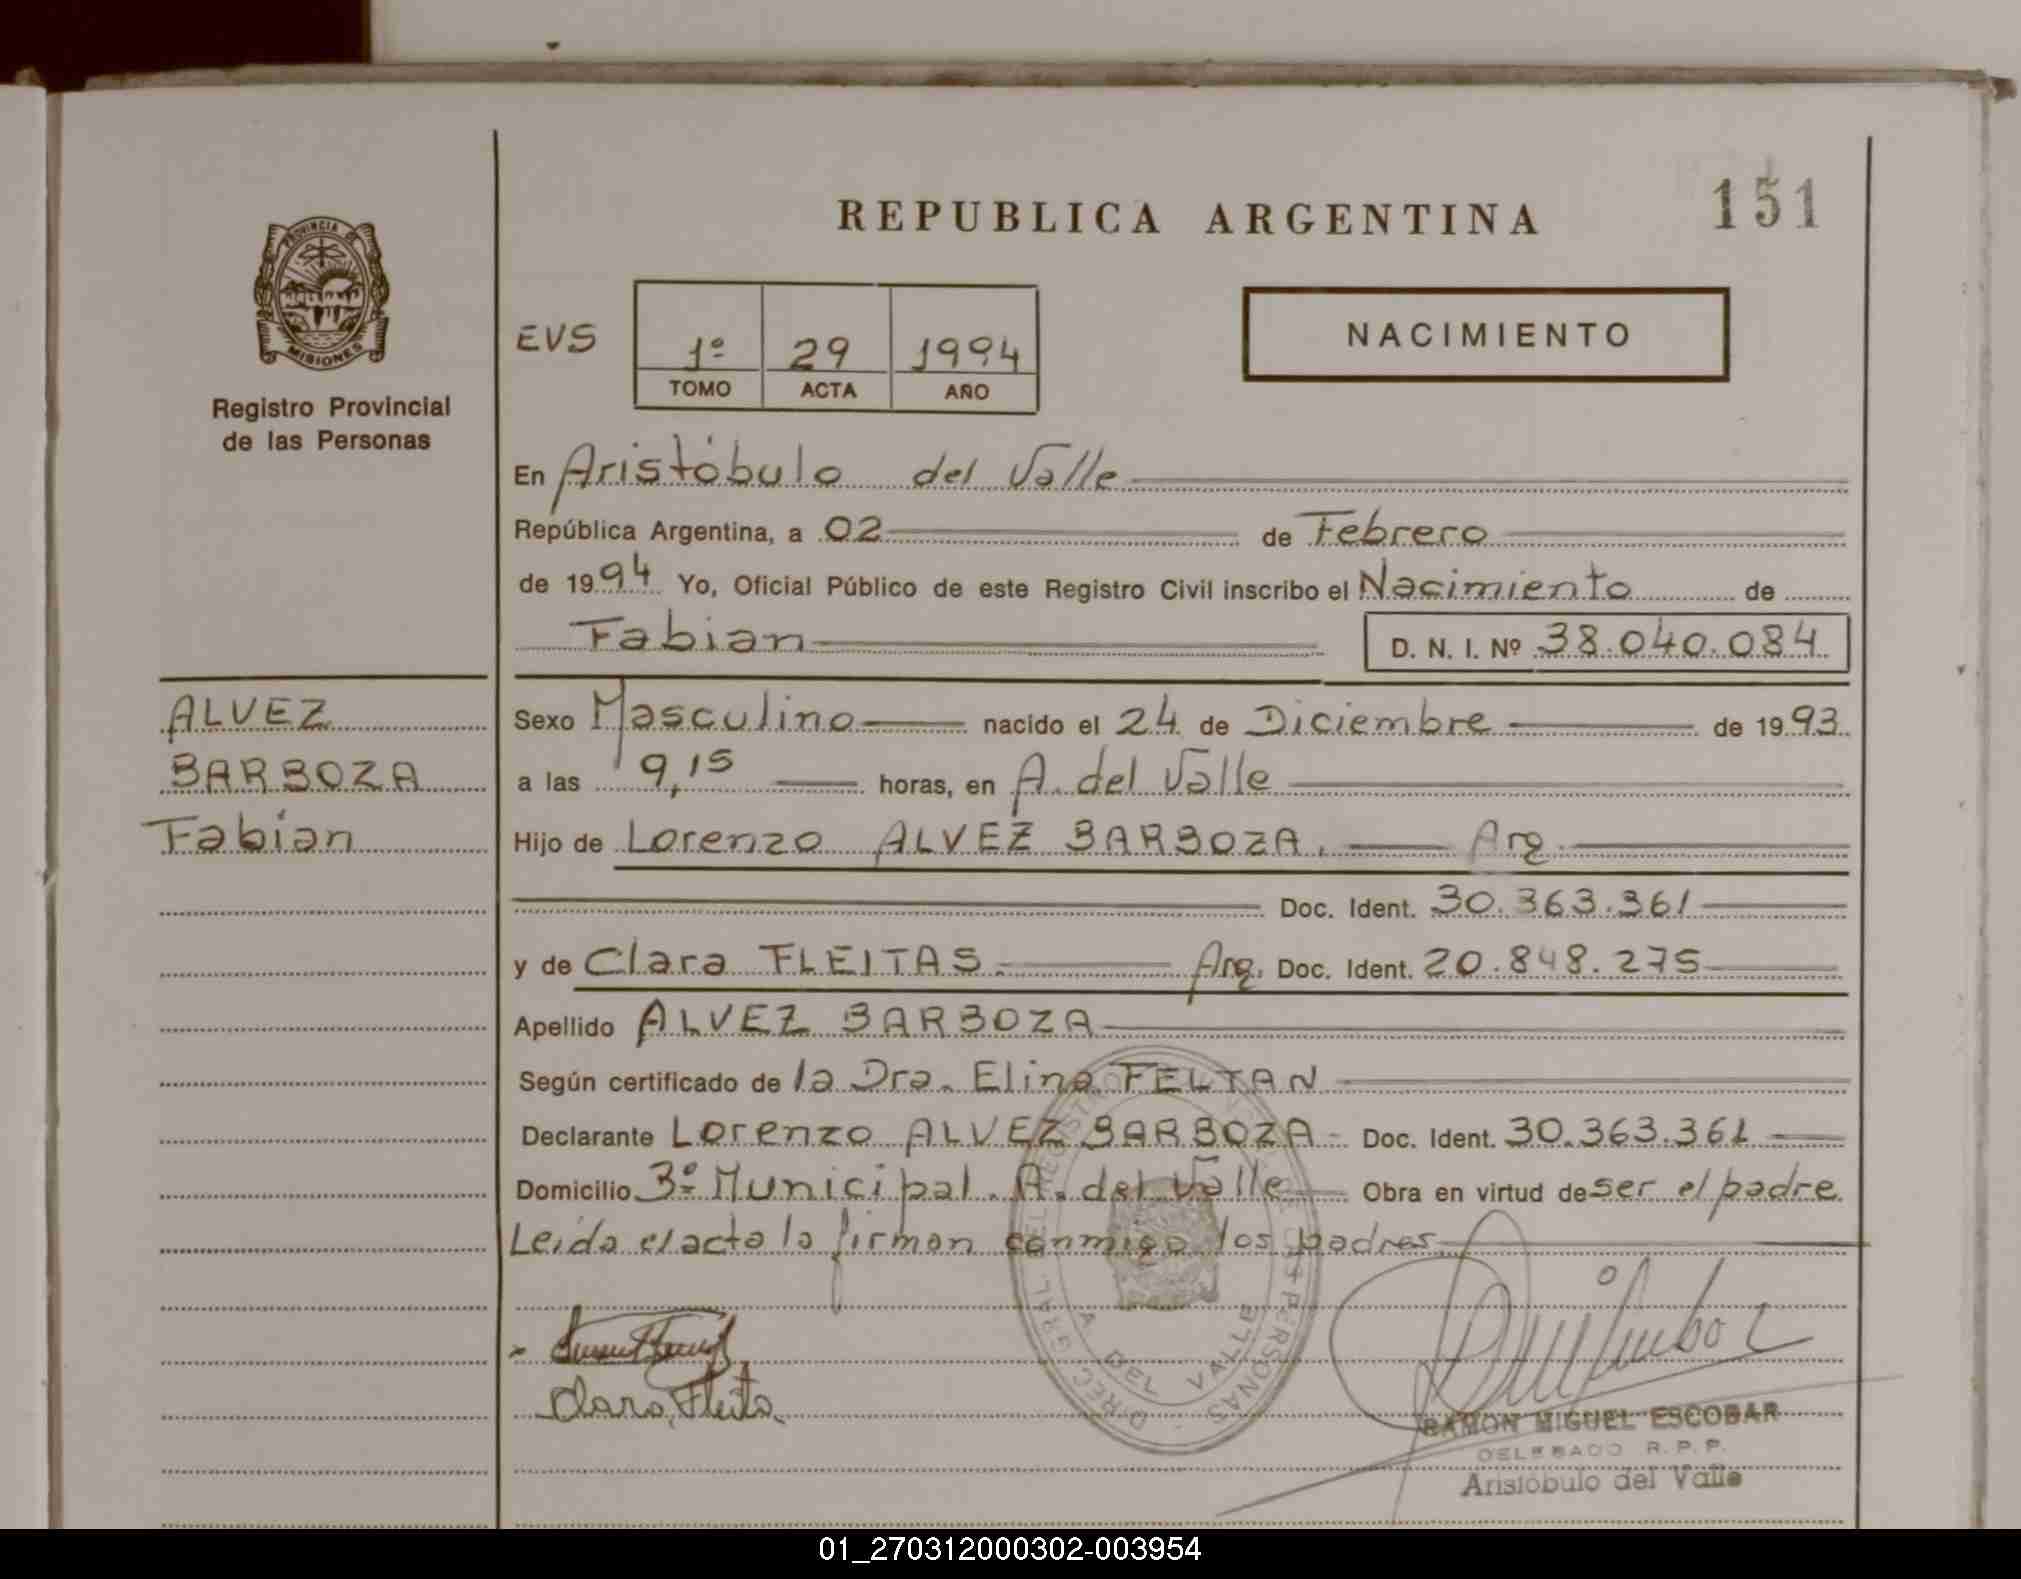 151
REPUBLICA ARGENTINA
PROVINCIA DE
MISIONES
Registro Provincial
de las Personas
EVS
1º 29 1994
TOMO ACTA AÑO
NACIMIENTO
En Aristóbulo del Valle
República Argentina, a 02 de Febrero
de 1994 Yo, Oficial Público de este Registro Civil inscribo el Nacimiento de
Fabian D. N. I. Nº 38.040.084
ALVEZ
BARBOZA
Fabian
Sexo Masculino nacido el 24 de Diciembre de 1993
a las 9,15 horas, en A. del Valle
Hijo de Lorenzo ALVEZ BARBOZA. Arg.
Doc. Ident. 30.363.361
y de Clara FLEITAS. Arg. Doc. Ident. 20.848.275
Apellido ALVEZ BARBOZA
Según certificado de la Dra. Elina FELTAN
Declarante Lorenzo ALVEZ BARBOZA Doc. Ident. 30.363.361
Domicilio 3º Municipal. A. del Valle Obra en virtud de ser el padre
Leida el acta la firman conmigo los padres.
Clara Fleita
A DEL VALLE
RAMON MIGUEL ESCOBAR
DELEGADO R.P.P.
Aristóbulo del Valle
01_270312000302-003954